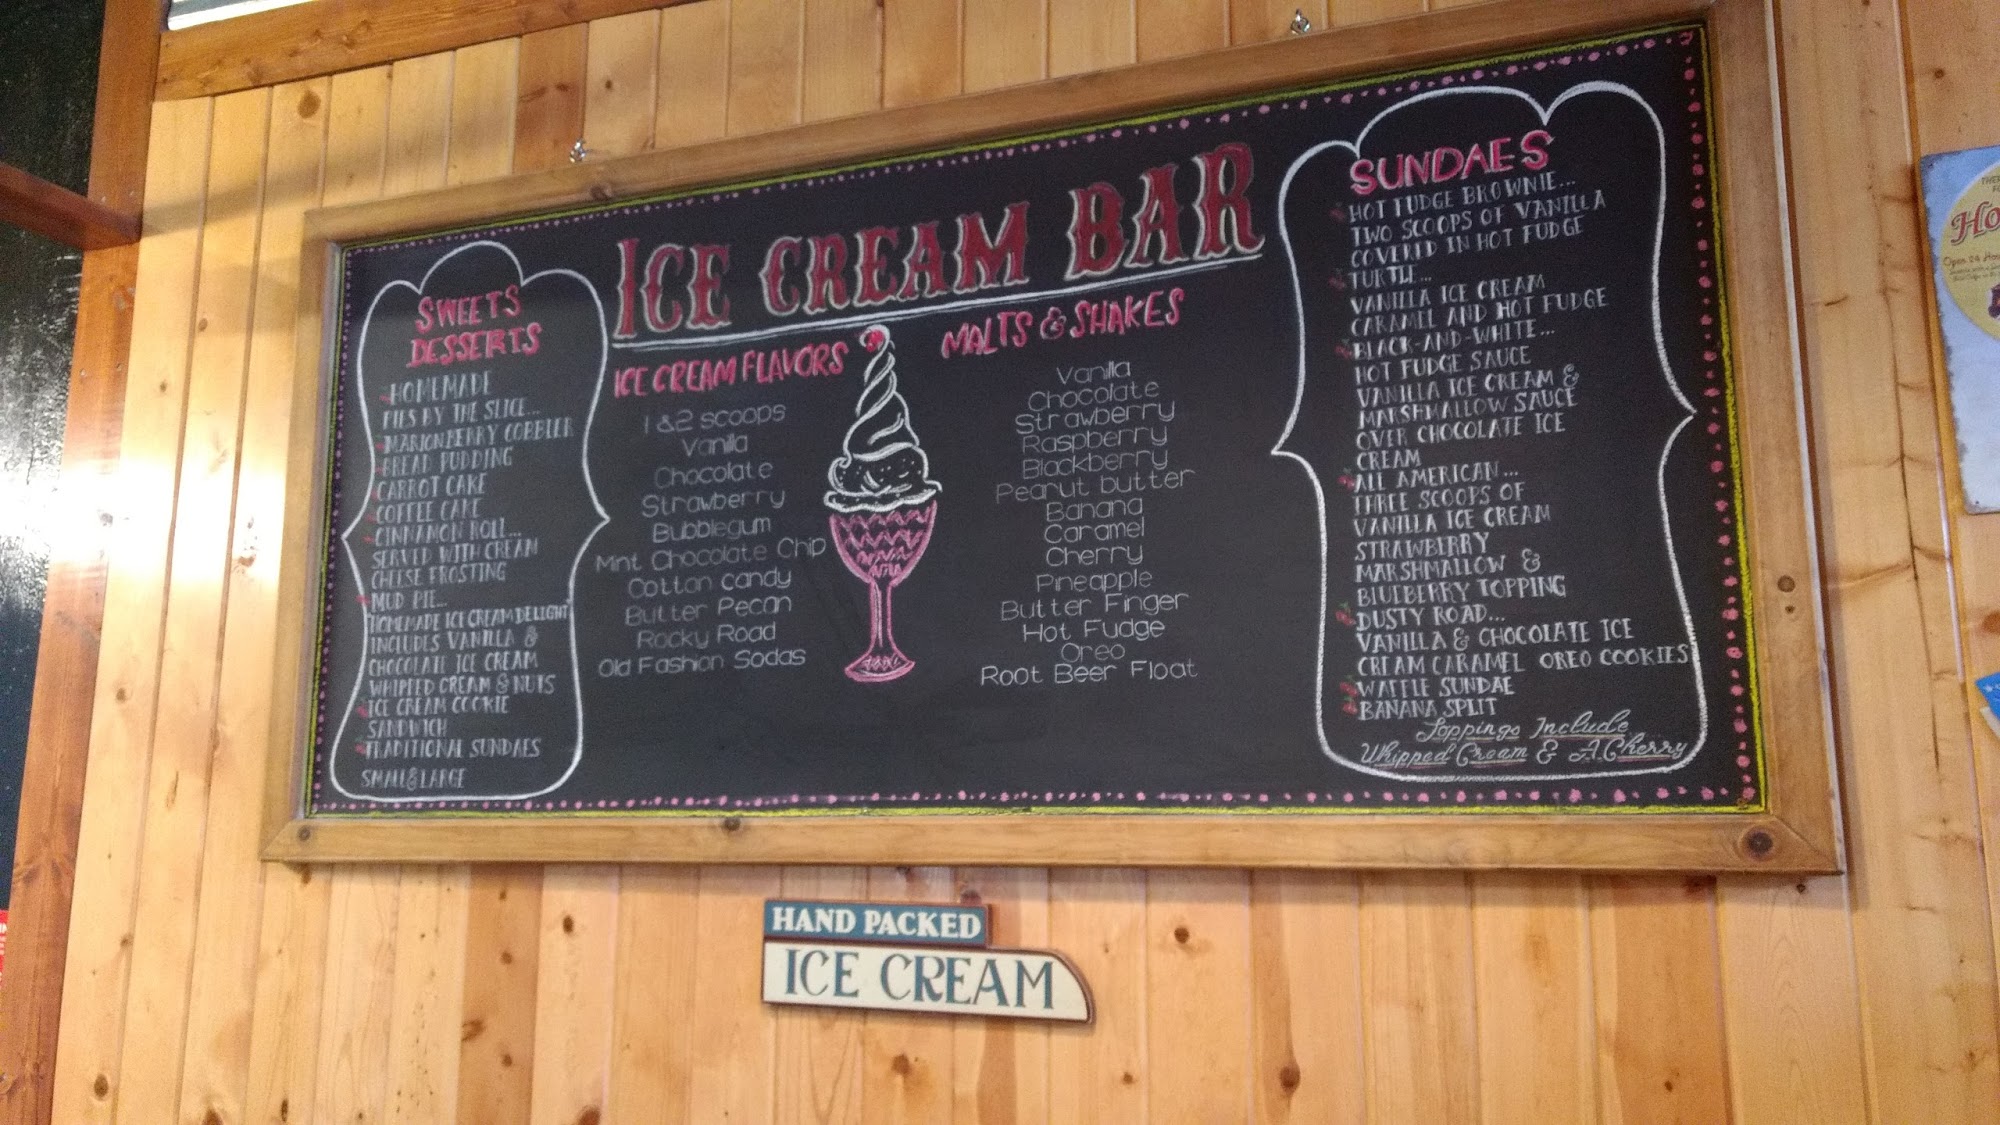 ICE CREAM BAR
SWEETS
DESSERTS
HOMEMADE
PIES BY THE SLICE...
MARIONBERRY COBBLER
BREAD PUDDING
CARROT CAKE
COFFEE CAKE
CINNAMON ROLL...
SERVED WITH CREAM
CHEESE FROSTING
MUD PIE...
HOMEMADE ICE CREAM DELIGHT
INCLUDES VANILLA &
CHOCOLATE ICE CREAM
WHIPPED CREAM & NUTS
ICE CREAM COOKIE
SANDWICH
TRADITIONAL SUNDAES
SMALL & LARGE
ICE CREAM FLAVORS
1 & 2 scoops
Vanilla
Chocolate
Strawberry
Bubblegum
Mint Chocolate Chip
Cotton candy
Butter Pecan
Rocky Road
Old Fashion Sodas
MALTS & SHAKES
Vanilla
Chocolate
Strawberry
Raspberry
Blackberry
Peanut butter
Banana
Caramel
Cherry
Pineapple
Butter Finger
Hot Fudge
Oreo
Root Beer Float
SUNDAES
HOT FUDGE BROWNIE...
TWO SCOOPS OF VANILLA
COVERED IN HOT FUDGE
TURTLE...
VANILLA ICE CREAM
CARAMEL AND HOT FUDGE
BLACK-AND-WHITE...
HOT FUDGE SAUCE
VANILLA ICE CREAM &
MARSHMALLOW SAUCE
OVER CHOCOLATE ICE
CREAM
ALL AMERICAN...
THREE SCOOPS OF
VANILLA ICE CREAM
STRAWBERRY
MARSHMALLOW &
BLUEBERRY TOPPING
DUSTY ROAD...
VANILLA & CHOCOLATE ICE
CREAM CARAMEL OREO COOKIES
WAFFLE SUNDAE
BANANA SPLIT
Toppings Include
Whipped Cream & A Cherry
HAND PACKED
ICE CREAM
Ho
Open 24 Ho